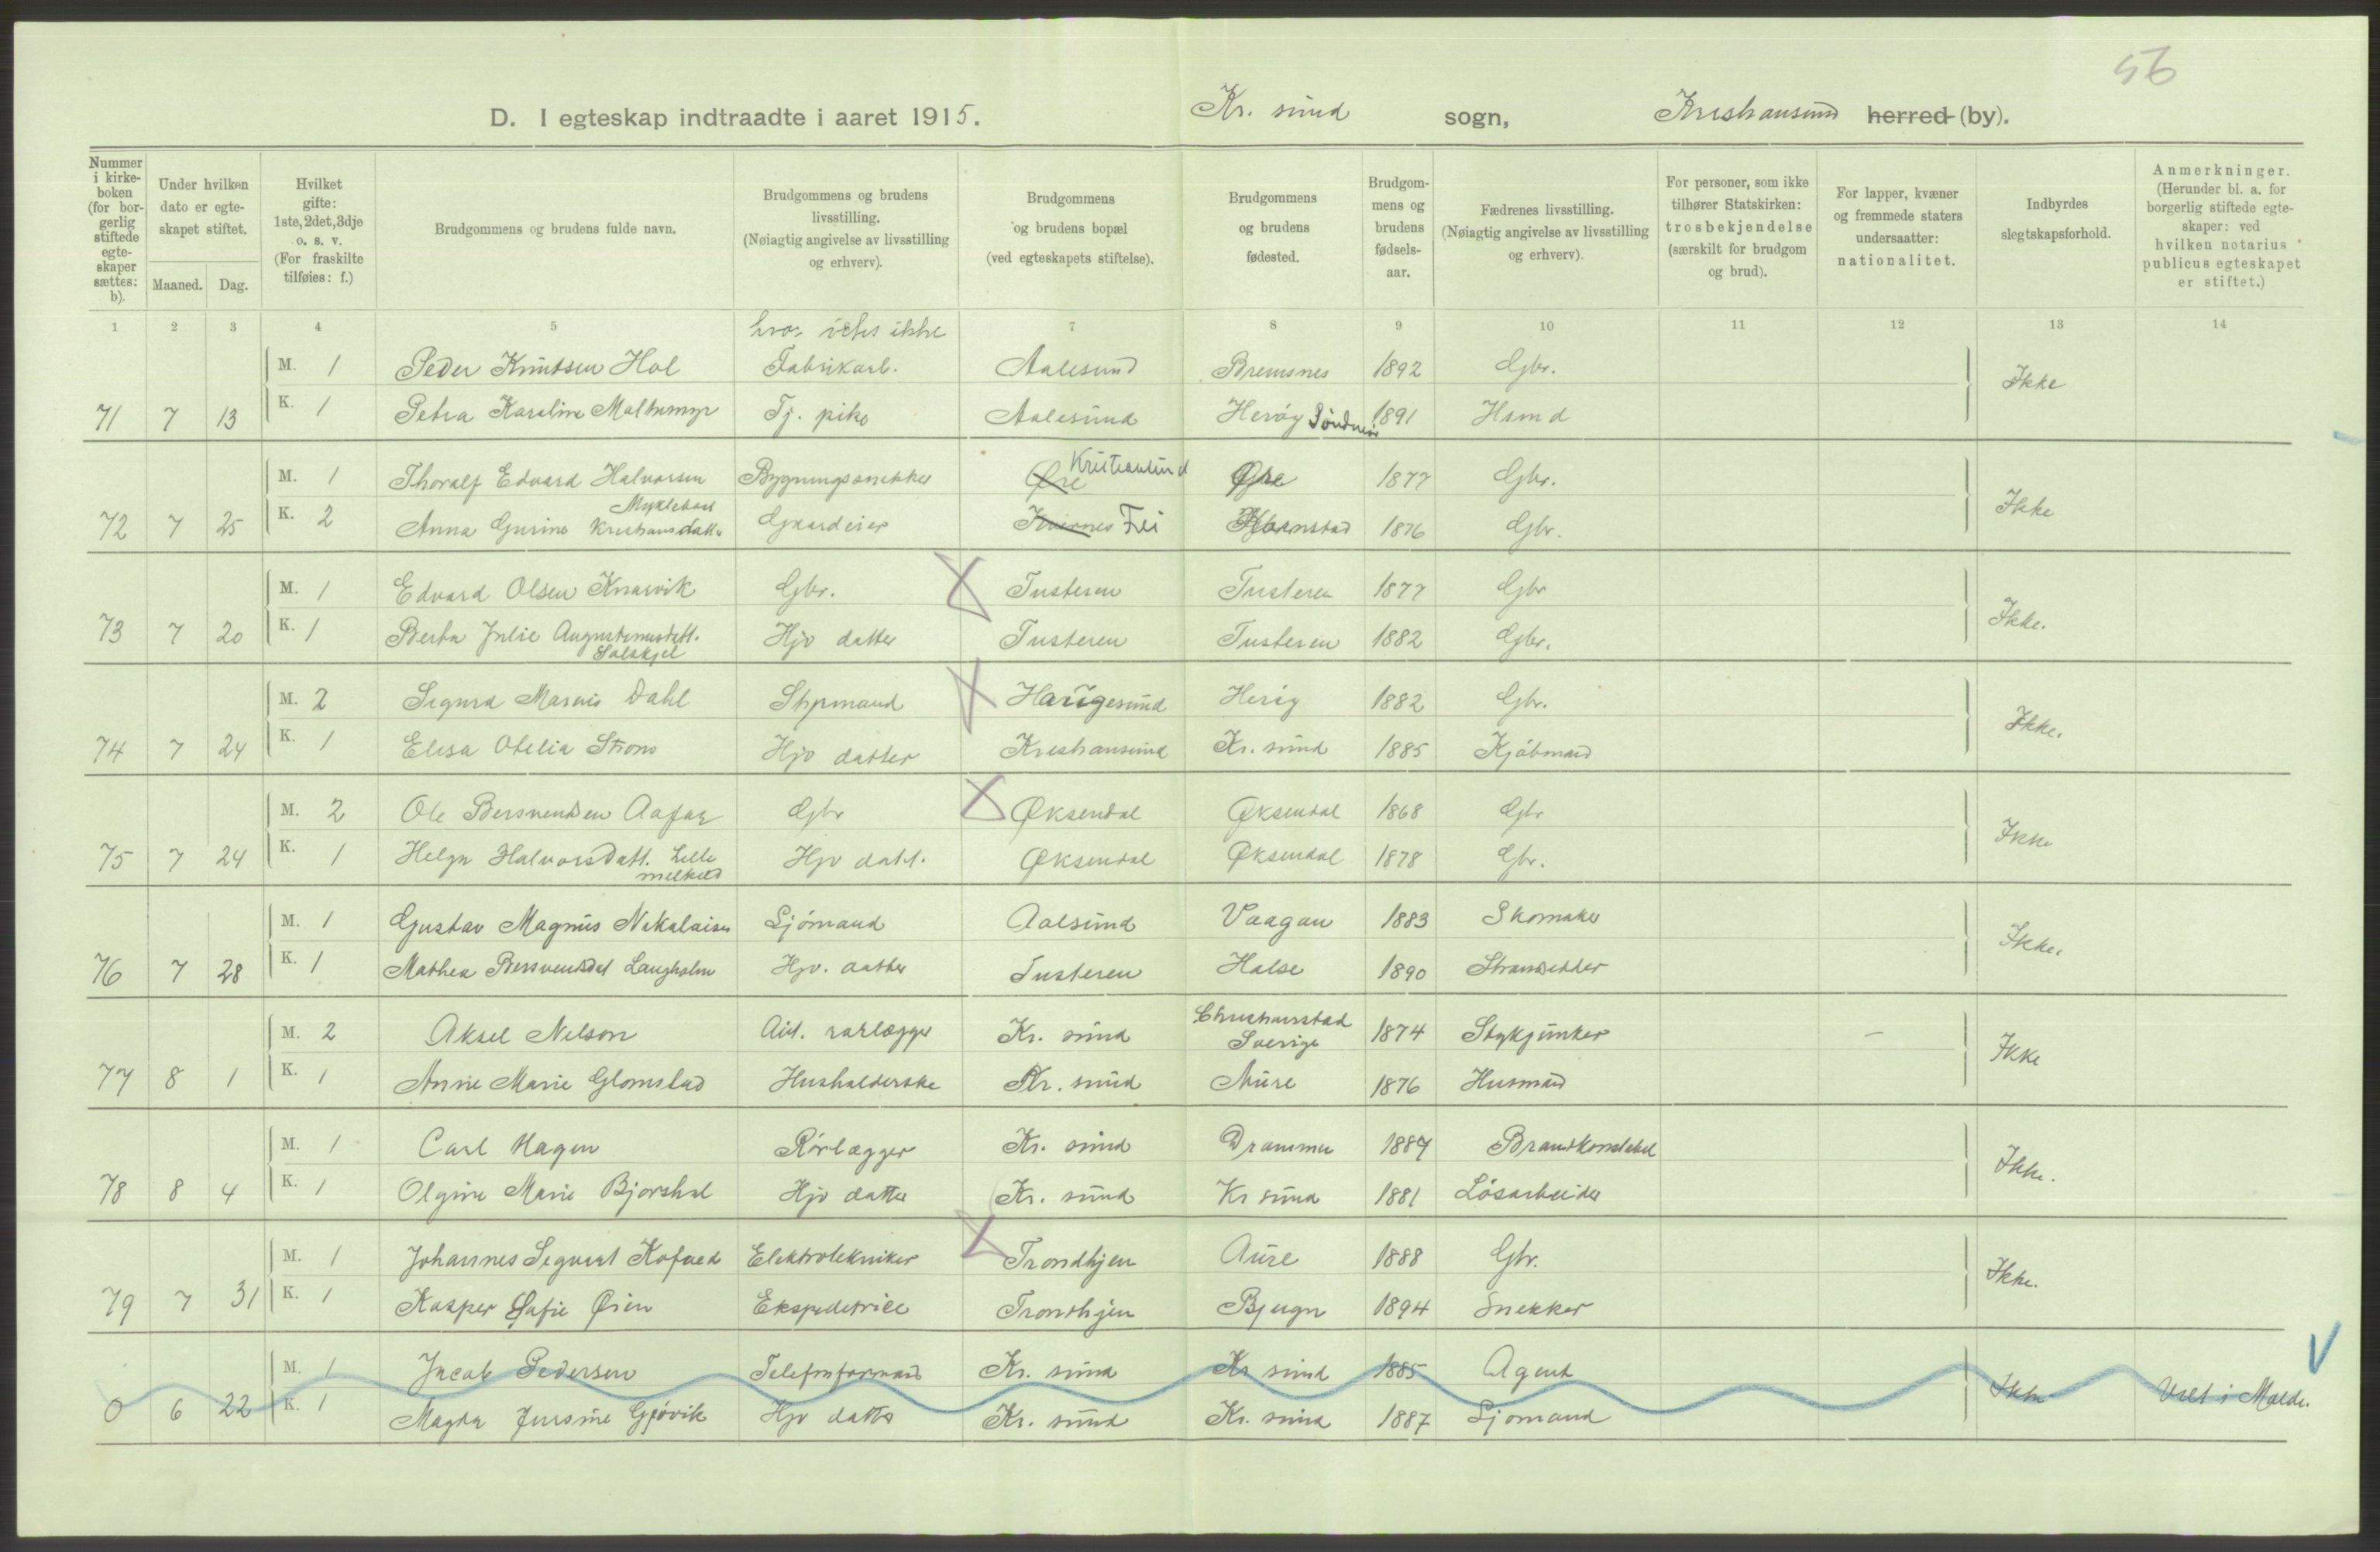 56
D. I egteskap indtraadte i aaret 1915. Kr. sund sogn, Kristiansund herred (by).
Nummer i kirkeboken (for borgerlig stiftede egteskaper sættes: b).
Under hvilken dato er egteskapet stiftet.
Maaned. Dag.
Hvilket gifte: 1ste, 2det, 3dje o. s. v. (For fraskilte tilføies: f.)
Brudgommens og brudens fulde navn.
Brudgommens og brudens livsstilling. (Nøiagtig angivelse av livsstilling og erhverv).
Brudgommens og brudens bopæl (ved egteskapets stiftelse).
Brudgommens og brudens fødested.
Brudgommens og brudens fødselsaar.
Fædrenes livsstilling. (Nøiagtig angivelse av livsstilling og erhverv).
For personer, som ikke tilhører Statskirken: trosbekjendelse (særskilt for brudgom og brud).
For lapper, kvæner og fremmede staters undersaatter: nationalitet.
Indbyrdes slegtskapsforhold.
Anmerkninger. (Herunder bl. a. for borgerlig stiftede egteskaper: ved hvilken notarius publicus egteskapet er stiftet.)
1 2 3 4 5 7 8 9 10 11 12 13 14
hvor vides ikke
M. 1 Peder Knutsen Hol Fabrikarb. Aalesund Bremsnes 1892 Gbr. Ikke
71 7 13 K. 1 Petra Karoline Maltemyr Tj. pike Aalesund Herøy Söndmör 1891 Hsmd
M. 1 Thoralf Edvard Halvorsen Bygningssnekker Øre Kristiansund Øre 1877 Gbr. Ikke
72 7 25 K. 2 Anna Gurine Kristiansdatter Myklebost Gaardeier Kvernes Frei Kornstad 1876 Gbr.
M. 1 Edvard Olsen Knarvik Gbr. Tusteren Tusteren 1877 Gbr Ikke.
73 7 20 K. 1 Berta Julie Augustinusdatt. Solskjel Hjv datter Tusteren Tusteren 1882 Gbr.
M. 2 Sigurd Marius Dahl Styrmand Haugesund Herøy 1882 Gbr. Ikke.
74 7 24 K. 1 Elisa Otelia Strøm Hjv datter Kristiansund Kr. sund 1885 Kjöbmand
M. 2 Ole Bersvendsen Aafar Gbr Øksendal Øksendal 1868 Gbr Ikke
75 7 24 K. 1 Helga Halvorsdatt. Lille melkild Hjv datt. Øksendal Øksendal 1878 Gbr.
M. 1 Gustav Magnus Nikolaisen Sjömand Aalsund Vaagan 1883 Skomaker Ikke.
76 7 28 K. 1 Mathea Bersvendsdat Langholm Hjv. datter Tusteren Halse 1890 Strandsidder
M. 2 Aksel Nelson Aut. rørlægger Kr. sund Christianstad Sverige 1874 Stykjunker – Ikke
77 8 1 K. 1 Anne Marie Glomstad Husholderske Kr. sund Aure 1876 Husmand
M. 1 Carl Hagen Rörlægger Kr. sund Drammen 1889 Brandkonstabel Ikke.
78 8 4 K. 1 Olgine Marie Bjorshol Hjv datter Kr. sund Kr sund 1881 Lösarbeider
M. 1 Johannes Sigvart Kofoed Elektrotekniker Trondhjem Aure 1888 Gbr. Ikke.
79 7 31 K. 1 Kasper Sofie Øien Ekspeditrice Trondhjem Bjugn 1894 Snekker
M. 1 Jacob Pedersen Telefonformand Kr. sund Kr sund 1885 Agent Ikke Viet i Molde.
0 6 22 K. 1 Magda Jursine Gjøvik Hjv datter Kr. sund Kr. sund 1887 Sjømand